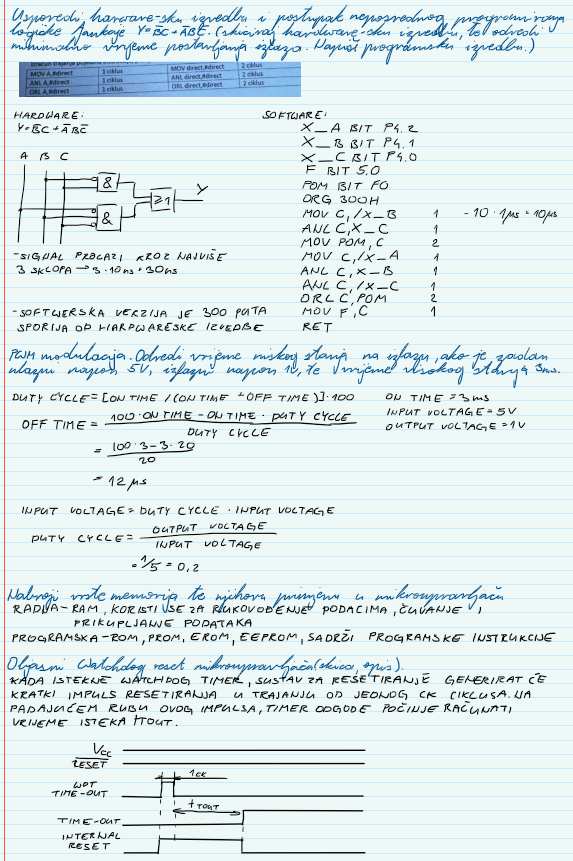 Usporedi hardware-sku izvedbu i postupak neposrednog programiranja
logičke funkcije Y=B̅C+A̅BC̅. (skiciraj hardware-sku izvedbu, te odredi
minimalno vrijeme postavljanja izlaza. Napiši programsku izvedbu.)
MOV A,#direct 1 ciklus MOV direct,#direct 2 ciklus
ANL A,#direct 1 ciklus ANL direct,#direct 2 ciklus
ORL A,#direct 1 ciklus ORL direct,#direct 2 ciklus
HARDWARE:
Y=B̅C+A̅BC̅
A B C
&
&
≥1
Y
-SIGNAL PROLAZI KROZ NAJVIŠE
3 SKLOPA → 3·10ns=30ns
-SOFTWERSKA VERZIJA JE 300 PUTA
SPORIJA OD HARDWARESKE IZVEDBE
SOFTWARE:
X_A BIT P4.2
X_B BIT P4.1
X_C BIT P4.0
F BIT 5.0
POM BIT F0
ORG 300H
MOV C,/X_B 1 -10·1μs=10μs
ANL C,X_C 1
MOV POM,C 2
MOV C,/X_A 1
ANL C,X_B 1
ANL C,/X_C 1
ORL C,POM 2
MOV F,C 1
RET
PWM modulacija. Odredi vrijeme niskog stanja na izlazu, ako je zadan
ulazni napon 5V, izlazni napon 1V, te vrijeme visokog stanja 3ms.
DUTY CYCLE=[ON TIME/(ON TIME+OFF TIME)]·100
OFF TIME = 100·ON TIME-ON TIME·DUTY CYCLE
DUTY CYCLE
= 100·3-3·20
20
= 12 μs
ON TIME=3ms
INPUT VOLTAGE=5V
OUTPUT VOLTAGE=1V
INPUT VOLTAGE=DUTY CYCLE·INPUT VOLTAGE
DUTY CYCLE= OUTPUT VOLTAGE
INPUT VOLTAGE
=1/5=0,2
Nabroji vrste memorija te njihovu primjenu u mikroupravljaču
RADNA-RAM, KORISTI SE ZA RUKOVOĐENJE PODACIMA, ČUVANJE I
PRIKUPLJANJE PODATAKA
PROGRAMSKA-ROM, PROM, EROM, EEPROM, SADRŽI PROGRAMSKE INSTRUKCIJE
Objasni Watchdog reset mikroupravljača(skica, opis).
KADA ISTEKNE WATCHDOG TIMER, SUSTAV ZA RESETIRANJE GENERIRAT ĆE
KRATKI IMPULS RESETIRANJA U TRAJANJU OD JEDNOG CK CIKLUSA. NA
PADAJUĆEM RUBU OVOG IMPULSA, TIMER ODGODE POČINJE RAČUNATI
VRIJEME ISTEKA tTOUT.
VCC
RESET
1CK
WDT
TIME-OUT
tTOUT
TIME-OUT
INTERNAL
RESET